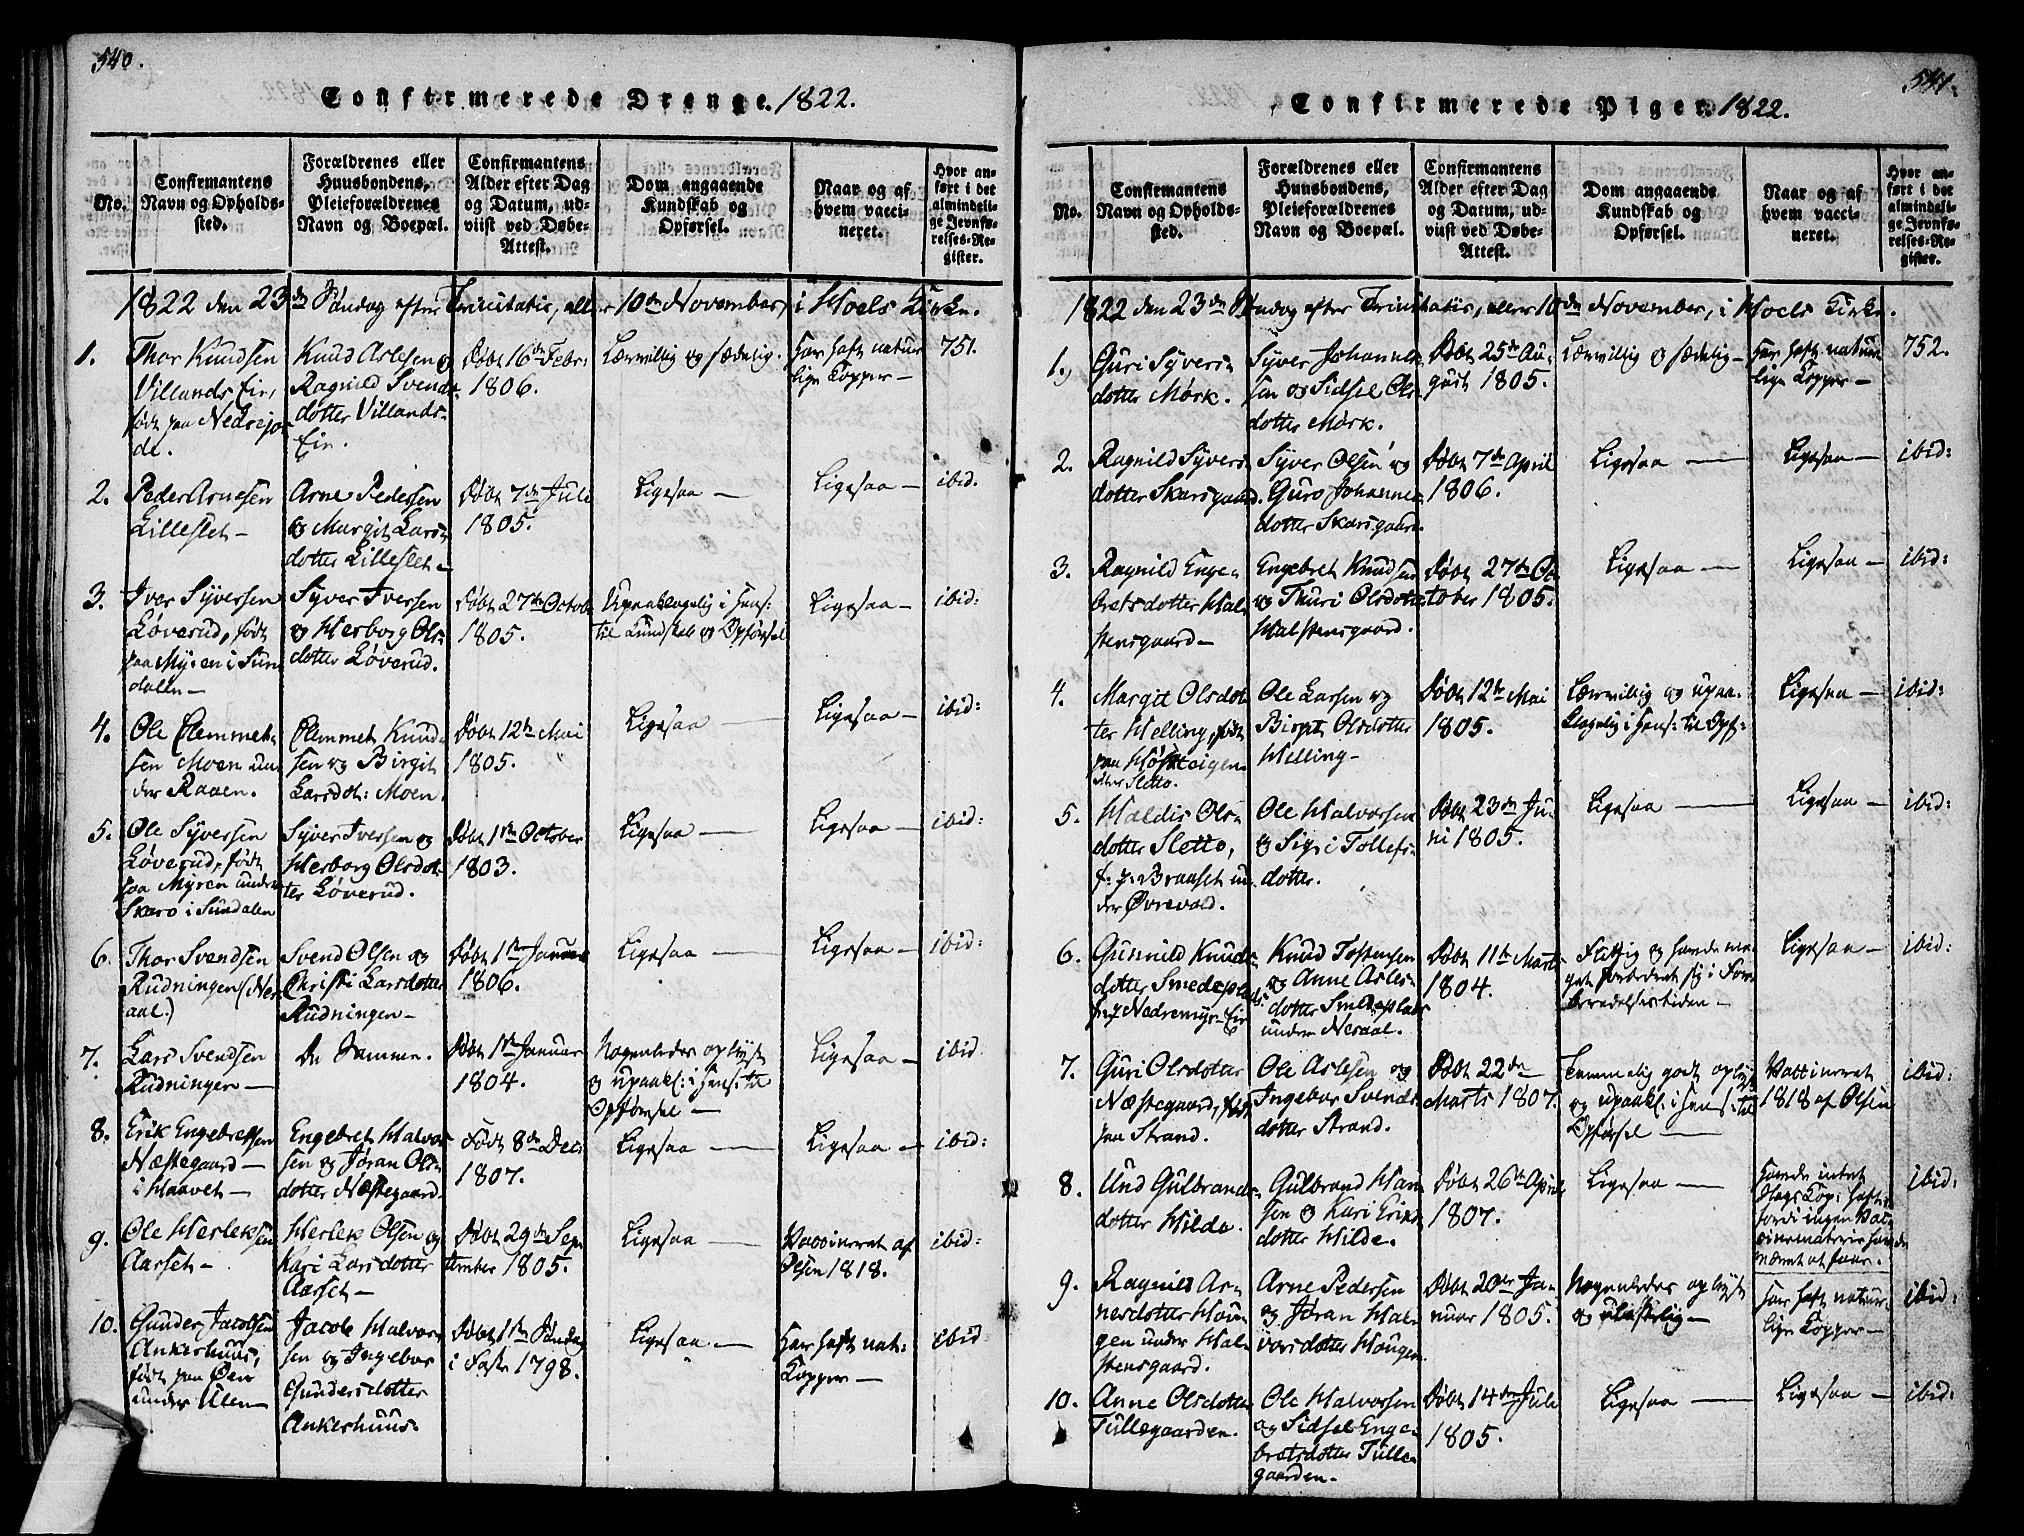 540.
Confirmerede Drenge. 1822.
No.
Confirmantens
Navn og Opholds-
sted.
Forældrenes eller
Huusbondens,
Pleieforældrenes
Navn og Boepæl.
Confirmantens
Alder efter Dag
og Datum, ud-
viist ved Døbe-
Attest.
Dom angaaende
Kundskab og
Opførsel.
Naar og af
hvem vacci-
neret.
Hvor an-
ført i det
almindeli-
ge Jevnfø-
relses-Re-
gister.
1822 den 23de Søndag efter Trinitatis, eller 10de November, i Hoels Kirke.
1.
Thor Knudsen
Villands Eie,
født paa Nedrejor
de.
Knud Aslesen og
Ragnild Svends-
dotter Villands-
Eie.
Døbt 16de Febr:
1806.
Lærvillig og sædelig.
Har haft natur
lige Kopper —
751.
2.
Peder Arnesen
Lilleslet —
Arne Pedersen
og Margit Lars-
dotter Lilleslet —
Døbt 7de Juli
1805.
Ligesaa —
Ligesaa —
ibid.
3.
Iver Syversen
Løverud, født
paa Myren i Sun
dalen —
Syver Iversen
og Herborg Ols-
dotter Løverud.
Døbt 27de Octobr
1805.
Upaaklagelig i Hens:
til Kundskab og Opførsel
Ligesaa —
ibid:
4.
Ole Clemmet-
sen Moen un-
der Raaen.
Clemmet Knud-
sen og Birgit
Larsdot: Moen.
Døbt 12te Mai
1805.
Ligesaa —
Ligesaa —
ibid:
5.
Ole Syversen
Løverud, født
paa Myren under
Skaro i Sundalen
Syver Iversen og
Herborg Olsdot-
ter Løverud.
Døbt 1ste October
1803.
Ligesaa —
Ligesaa —
ibid:
6.
Thor Svendsen
Rudningen (Nes
aal.)
Svend Olsen og
Christi Larsdotter
Rudningen —
Døbt 1ste Januar
1806.
Ligesaa —
Ligesaa —
ibid:
7.
Lars Svendsen
Rudningen —
De Samme.
Døbt 1ste Januar
1804.
Nogenledes oplyst
og upaakl: i Hens: til
Opførsel —
Ligesaa —
ibid.
8.
Erik Engebretsen
Næstegaard —
i Haavet —
Engebret Halvor
sen og Jøran Ols-
dotter Næstegaard.
Født 8de Dec:
1807.
Ligesaa —
Ligesaa —
ibid:
9.
Ole Herleksen
Aarset —
Herlek Olsen og
Kari Larsdotter
Aarset —
Døbt 29de Sep-
tember 1805.
Ligesaa —
Vaccineret af
Olsen 1818.
ibid:
10.
Gunder Jacobsen
Ankerhuus,
født paa Øen
under Ulen —
Jacob Halvor-
sen og Ingebor
Gundersdotter
Ankerhuus.
Døbt 1ste Søndag
i Faste 1798.
Ligesaa —
Har haft nat:
Kopper —
ibid
541.
Confirmerede Piger. 1822.
No.
Confirmantens
Navn og Opholds-
sted.
Forældrenes eller
Huusbondens,
Pleieforældrenes
Navn og Boepæl.
Confirmantens
Alder efter Dag
og Datum, ud-
viist ved Døbe-
Attest.
Dom angaaende
Kundskab og
Opførsel.
Naar og af
hvem vacci-
neret.
Hvor an-
ført i det
almindeli-
ge Jevnfø-
relses-Re-
gister.
1822 den 23de Søndag efter Trinitatis, eller 10de November, i Hoels Kirke.
1.
Guri Syvers-
dotter Mørk.
Syver Johannes-
sen og Sidsel Ols-
dotter Mørk.
Døbt 25de Au-
gust 1805.
Lærvillig og sædelig —
Har haft natur
lige Kopper —
752.
2.
Ragnild Syvers-
dotter Skarsgaard.
Syver Olsen og
Guro Johannes-
dotter Skarsgaard.
Døbt 7de April
1806.
Ligesaa —
Ligesaa —
ibid:
3.
Ragnild Enge-
bretsdotter Hal-
stensgaard —
Engebret Knudsen
og Thuri Olsdotter
Halstensgaard.
Døbt 27de Oc-
tober 1805.
Ligesaa —
Ligesaa —
ibid:
4.
Margit Olsdot-
ter Helling, født
paa Høfteigen
under Sletto.
Ole Larsen og
Birgit Olsdotter
Helling —
Døbt 12te Mai
1805.
Lærvillig og upaa-
klagelig i Hens: til Opf:
Ligesaa —
ibid:
5.
Haldis Ols-
dotter Sletto,
f: p: Braaset un-
der Øvrevold.
Ole Halvorsen
og Sigri Tollefs-
dotter.
Døbt 23de Ju-
ni 1805.
Ligesaa —
Ligesaa —
ibid:
6.
Gunnild Knuds-
dotter Smedsplads
f: p: Nedremyr-Eie
Knud Tostensen
og Anne Asles-
dotter Smedsplads
under Nesaal.
Døbt 11te Marts
1804.
Flittig og havde me-
get forbedret sig i For-
beredelsestiden —
Ligesaa —
ibid:
7.
Guri Olsdotter
Næstegaard, født
paa Strand.
Ole Aslesen og
Ingebor Svends-
dotter Strand.
Døbt 22de
Marts 1807.
Temmelig godt oplyst
og upaakl: i Hens: til
Opførsel —
Vaccineret
1818 af Olsen
ibid:
8.
Und Gulbrands-
dotter Hilde.
Gulbrand Han-
sen og Kari Eriks-
dotter Hilde.
Døbt 26de April
1807.
Ligesaa —
Havde intet
Slags Kop: haft
fordi ingen Vac-
cinematerie havde
været at faae.
ibid:
9.
Ragnild Ar-
nesdotter Hau-
gen under Hal-
stensgaard.
Arne Pedersen
og Jøran Hal-
vorsdotter Haugen
Døbt 20de Ja-
nuar 1805.
Nogenledes oplyst
og ulastelig —
Har haft natur-
lige Kopper —
ibid:
10.
Anne Olsdotter
Tullegaarden.
Ole Halvorsen
og Sidsel Enge-
bretsdotter Tulle-
gaarden.
Døbt 14de Juli
1805.
Ligesaa —
Ligesaa —
ibid: